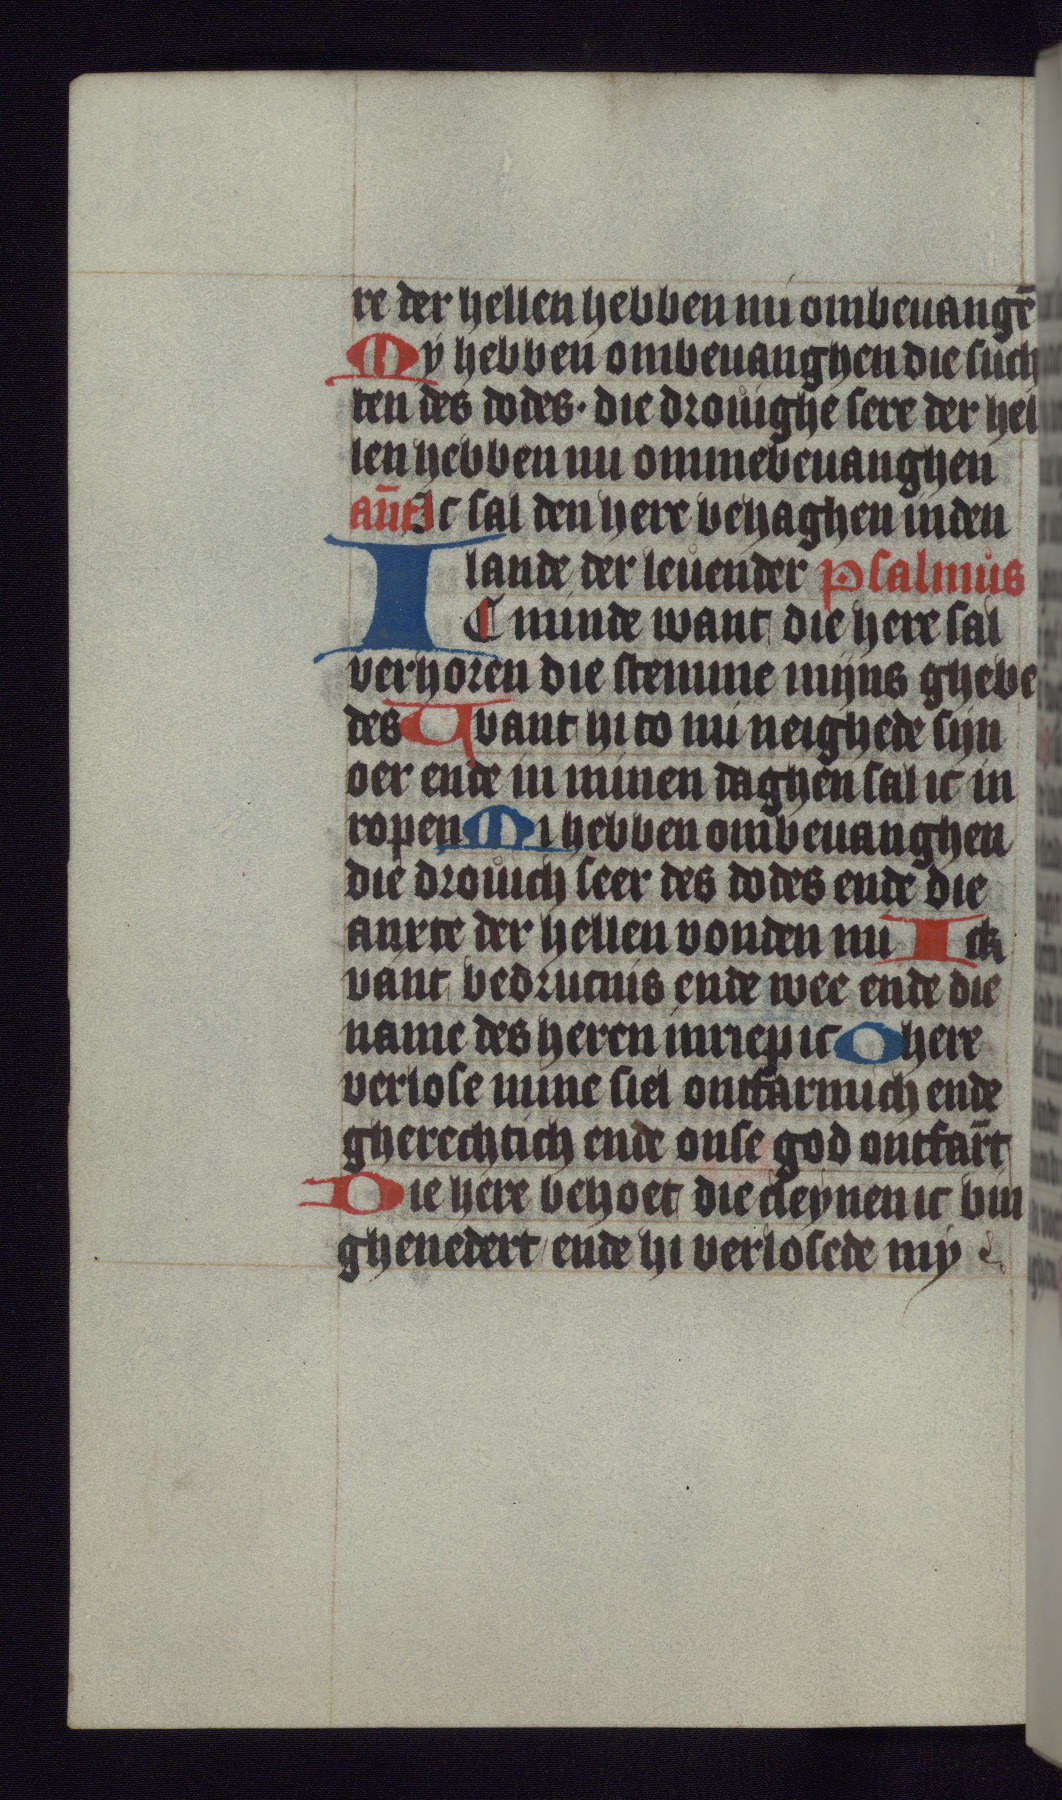 re der hellen hebben mi ombeuangē
My hebben ombeuanghen die such
ten des dodes· die drouighe sere der hel
len hebben mi ommebeuanghen
an̄t Ic sal den here behaghen in den
lande der leuender psalmus
IC minde want die here sal
verhoren die stemme mijns ghebe
des Want hi to mi neighede sijn
oer ende in minen daghen sal ic in
ropen Mi hebben ombeuanghen
die drouich seer des dodes ende die
anxte der hellen vonden mi Ick
vant bedrucnis ende wee ende die
name des heren inriep ic O here
verlose mine siel ontfarmich ende
gherechtich ende onse god ontfar̄t
Die here behoet die cleynen ic bin
ghenedert ende hi verlosede my